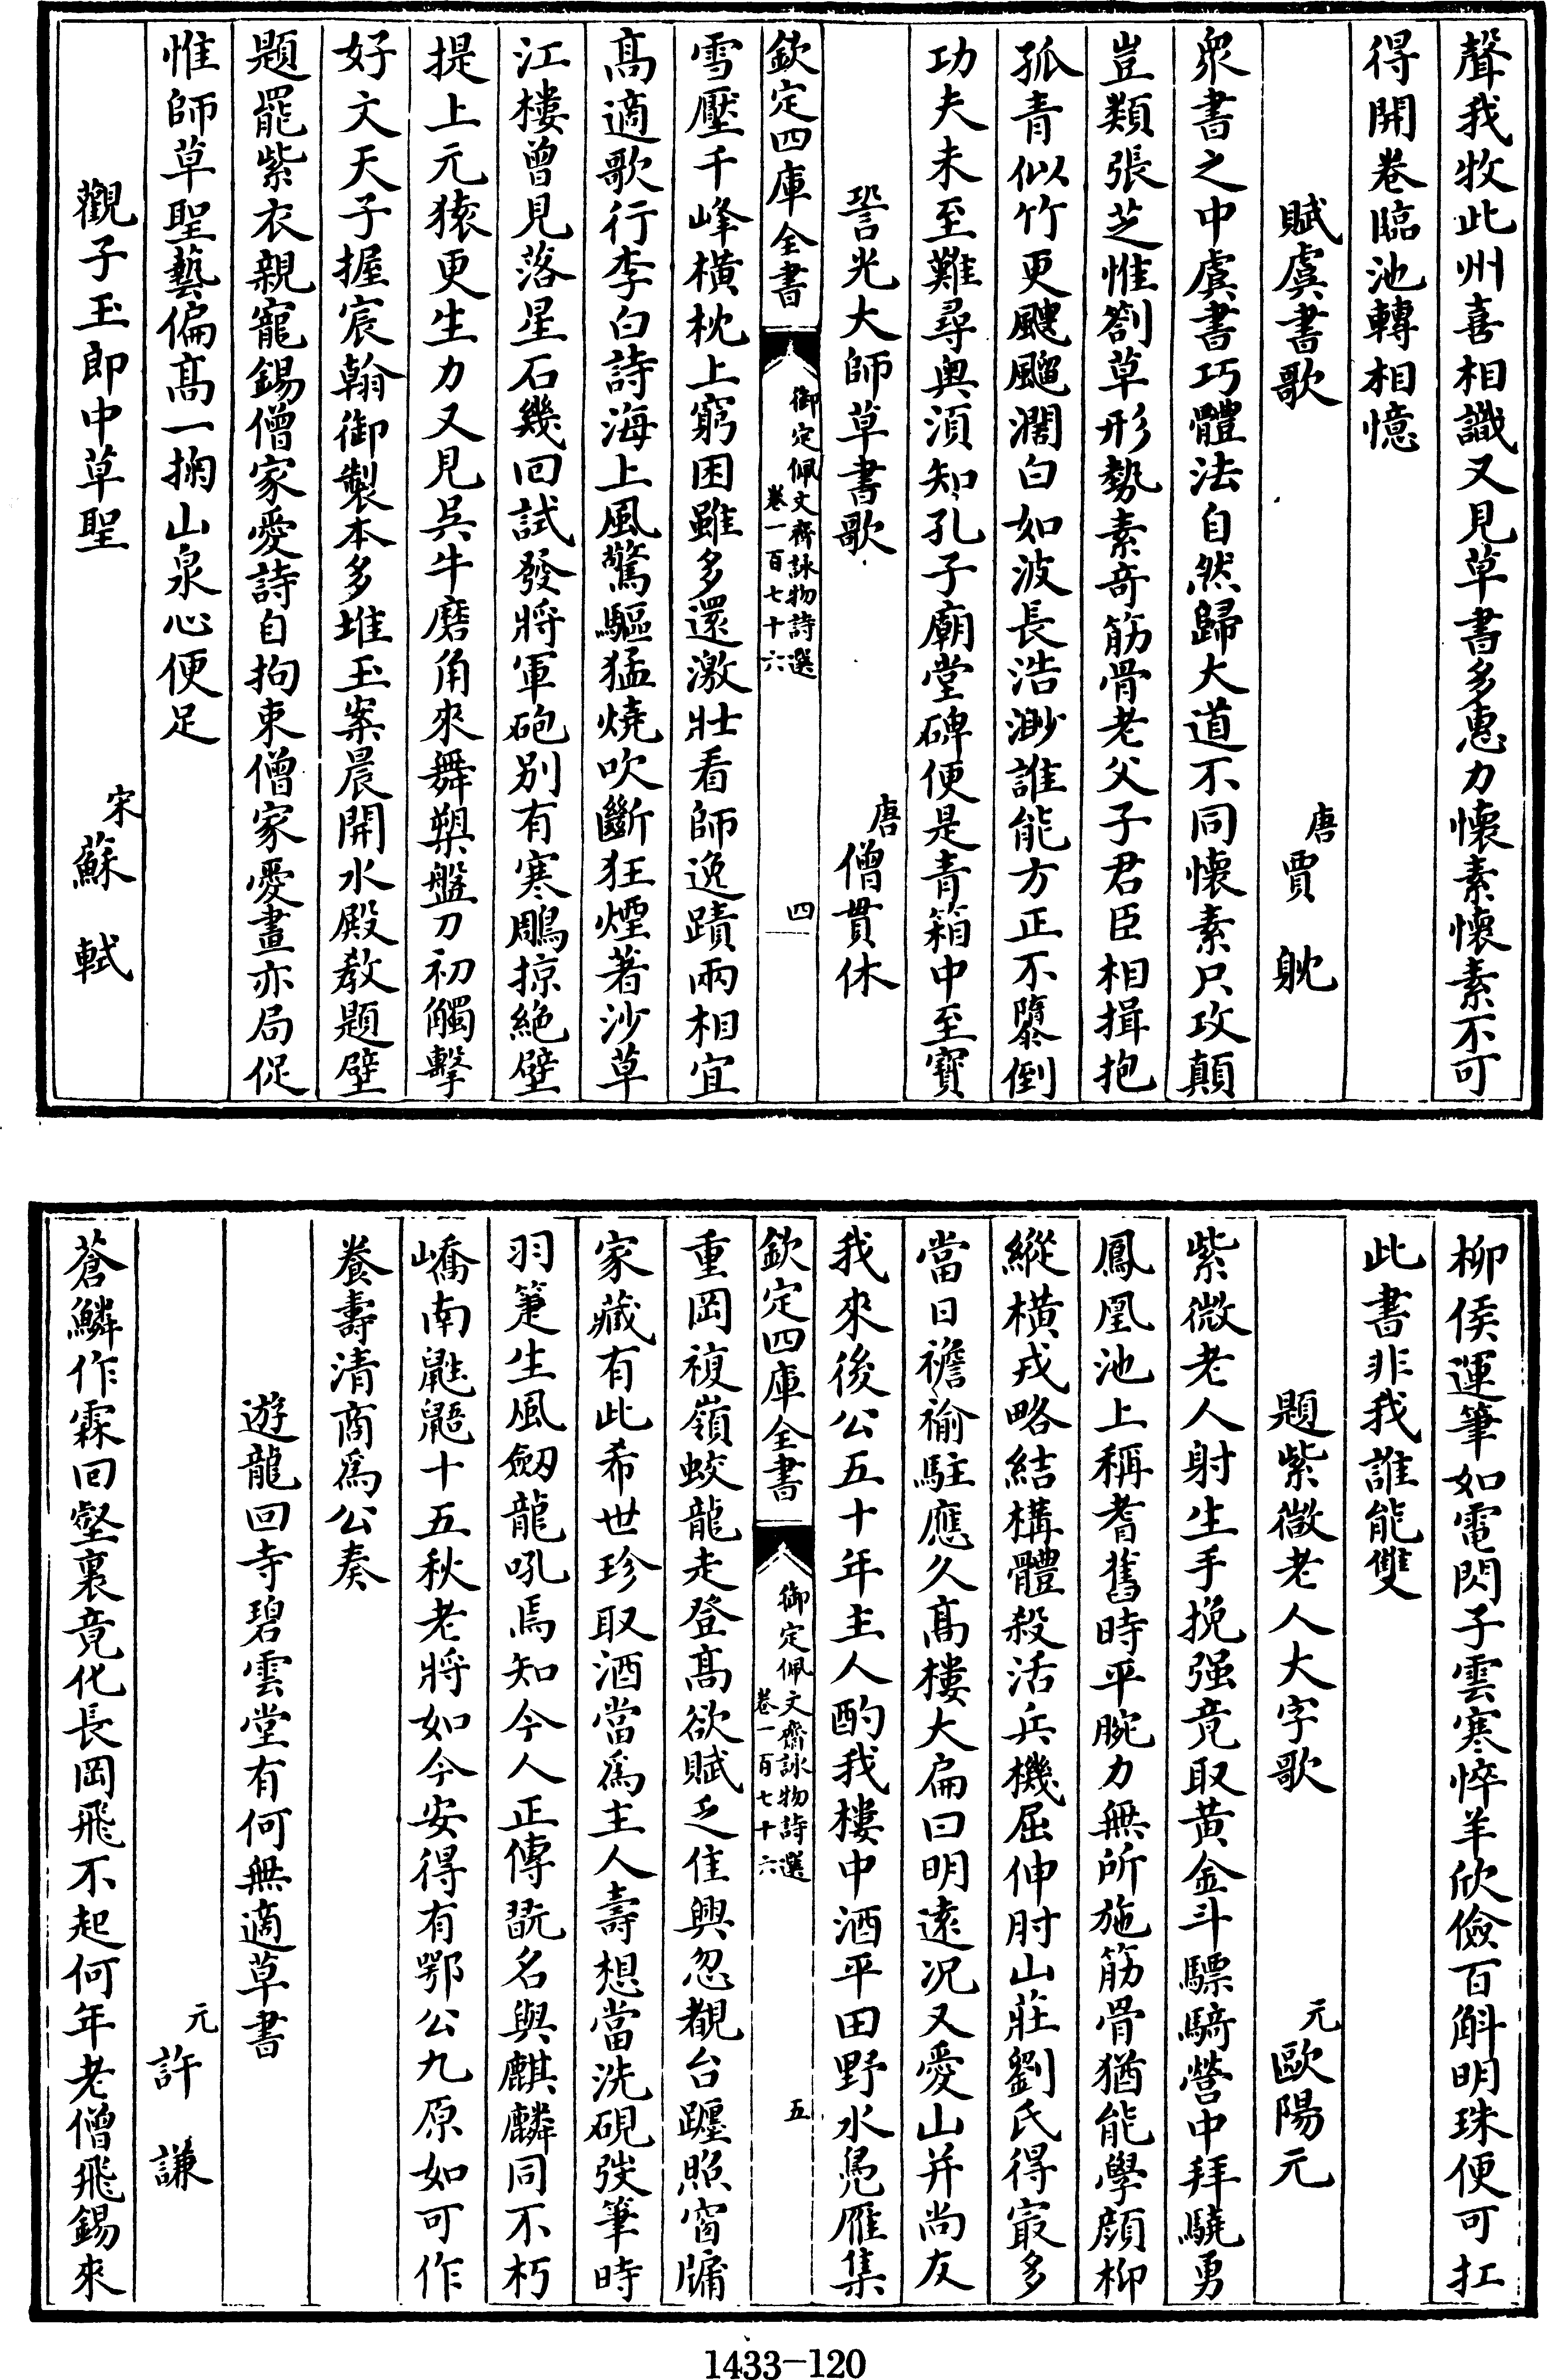 聲我牧此州喜相識又見草書多惠力懷素懷素不可
得開卷臨池轉相憶
賦虞書歌
唐賈躭
衆書之中虞書巧體法自然歸大道不同懷素只攻顛
豈類張芝惟劄草形勢素竒筋骨老父子君臣相揖抱
孤青似竹更飕飀濶白如波長浩渺誰能方正不隳倒
功夫未至難尋奥湏知孔子廟堂碑便是青箱中至寳
㫺光大師草書歌
唐僧貫休
欽定四庫全書
御定佩文齋詠物詩選
卷一百七十六
四
雪壓千峰横枕上窮困雖多還激壯看師逸蹟兩相宜
髙適歌行李白詩海上風驚驅猛燒吹斷狂煙著沙草
江樓曾見落星石幾回試發將軍砲别有寒鵰掠絶壁
提上元猿更生力又見吳牛磨角來舞槊盤刀初觸擊
好文天子握宸翰御製本多堆玉案晨開水殿教題壁
題罷紫衣親寵錫僧家愛詩自拘束僧家愛畫亦局促
惟師草聖藝偏髙一掬山泉心便足
觀子玉郎中草聖
宋蘇軾
柳侯運筆如電閃子雲寒悴羊欣儉百斛明珠便可扛
此書非我誰能雙
題紫微老人大字歌
元歐陽元
紫微老人射生手挽强竟取黃金斗驃騎營中拜驍勇
鳳凰池上稱耆舊時平腕力無所施筋骨猶能學顔柳
縱橫戎略結構體殺活兵機屈伸肘山莊劉氏得㝡多
當日襜褕駐應久髙樓大扁曰明遠况又愛山并尚友
我來後公五十年主人酌我樓中酒平田野水鳬雁集
欽定四庫全書
御定佩文齋詠物詩選
卷一百七十六
五
重岡複嶺蛟龍走登髙欲賦乏佳興忽覩台躔照窗牖
家藏有此希世珍取酒當爲主人壽想當洗硯弢筆時
羽箑生風劒龍吼焉知今人正傳翫名與麒麟同不朽
嶠南鼪鼯十五秋老將如今安得有鄂公九原如可作
養壽清商爲公奏
遊龍回寺碧雲堂有何無適草書
元許謙
蒼鱗作霖回壑裏竟化長岡飛不起何年老僧飛錫來
1433-120